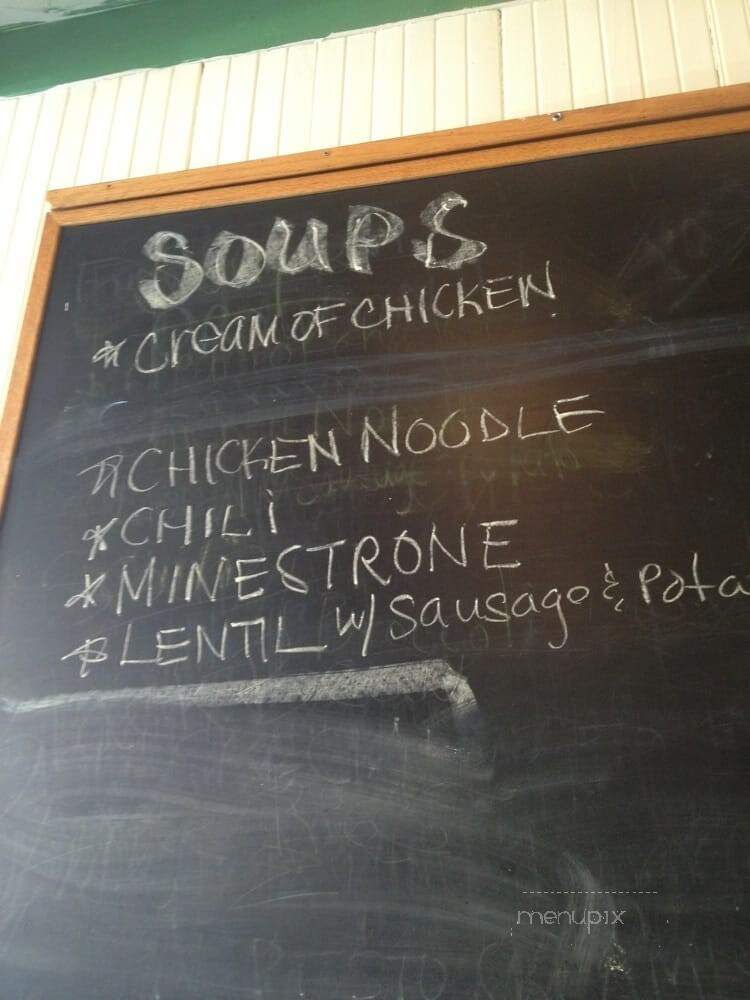 SOUPS
* Cream OF CHICKEN
* CHICKEN NOODLE
* CHILi
* MINESTRONE
* LENTIL w/ Sausage & Pota
menupix